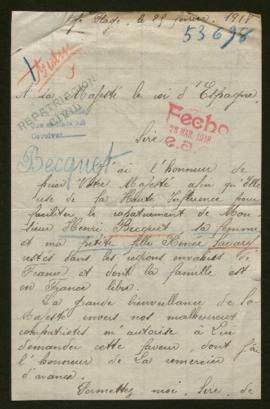 le 25 février, 1918
53698
REPATRIATION
A Sa Majesté le roi d'Espagne,
Fecho
28 MAR. 1918
e.a.
Sire
Becquet
J'ai l'honneur de
prier Votre Majesté afin qu'Elle
use de sa Haute Influence pour
faciliter le rapatriement de Mon-
sieur Henri Becquet, sa femme
et ma petite fille Renée
restés dans les régions envahies de
France et dont la famille est
en France libre.
La grande bienveillance de Sa
Majesté envers nos malheureux
compatriotes m'autorise à Lui
demander cette faveur, dont j'ai
l'honneur de La remercier
d'avance.
Permettez moi, Sire, de